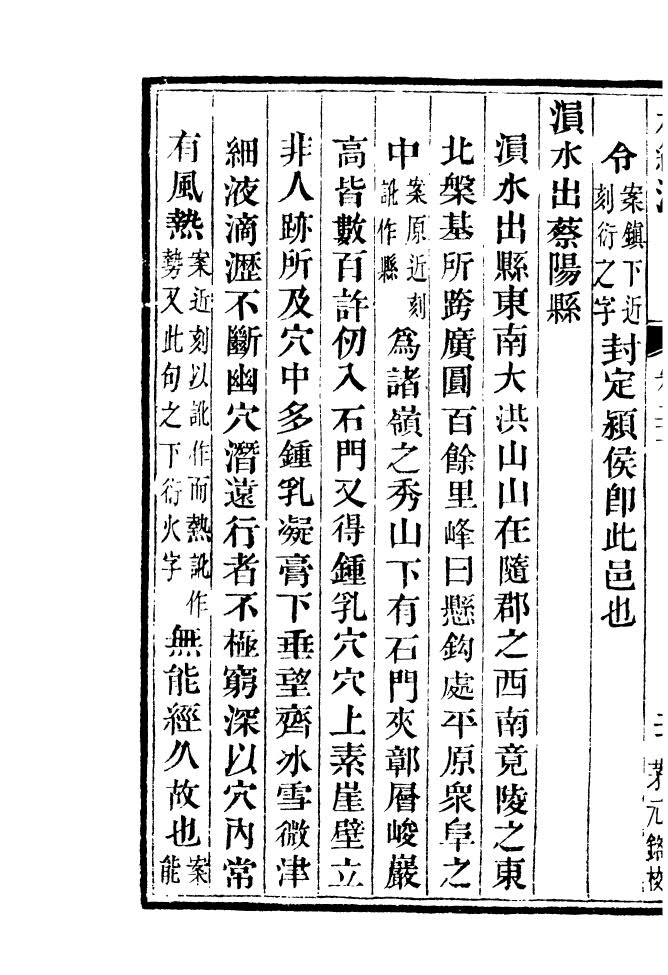 令案鎭下近刻衍之字封定潁侯卽此邑也
溳水出蔡陽縣
溳水出縣東南大洪山山在隨郡之西南竟陵之東
北槃基所跨廣圓百餘里峰曰懸鈎處平原衆阜之
中案原近刻訛作縣爲諸嶺之秀山下有石門夾鄣層峻巖
高皆數百許仞入石門又得鍾乳穴穴上素崖壁立
非人跡所及穴中多鍾乳凝膏下垂望齊冰雪微津
細液滴瀝不斷幽穴潛遠行者不極窮深以穴內常
有風熱案近刻以訛作而熱訛作勢又此句之下衍火字無能經久故也案能